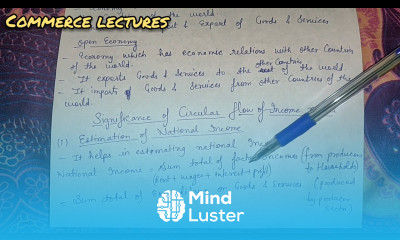 COMMERCE LECTURES
the world
& Export of Goods & Services
open Economy
- Economy which has economic relations with other Countries
of the world.
other Countries
- It exports Goods & Services to the rest of the world
- It imports Goods & Services from other Countries of the
world.
Significance of Circular flow of Income
(1) Estimation of National Income
- It helps in estimating national
National Income = Sum total of factor incomes (from producers
to Households)
(Rent + wages + interest + profit)
= Sum total of on Goods & Services (produced
by producing
sector)
Mind
Luster